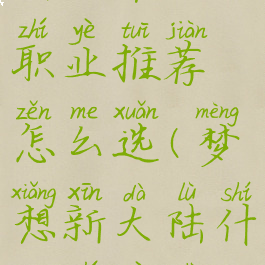 zhí yè tuī jiàn
职业推荐
zěn me xuǎn mèng
怎么选(梦
xiǎng xīn dà lù shí
想新大陆什